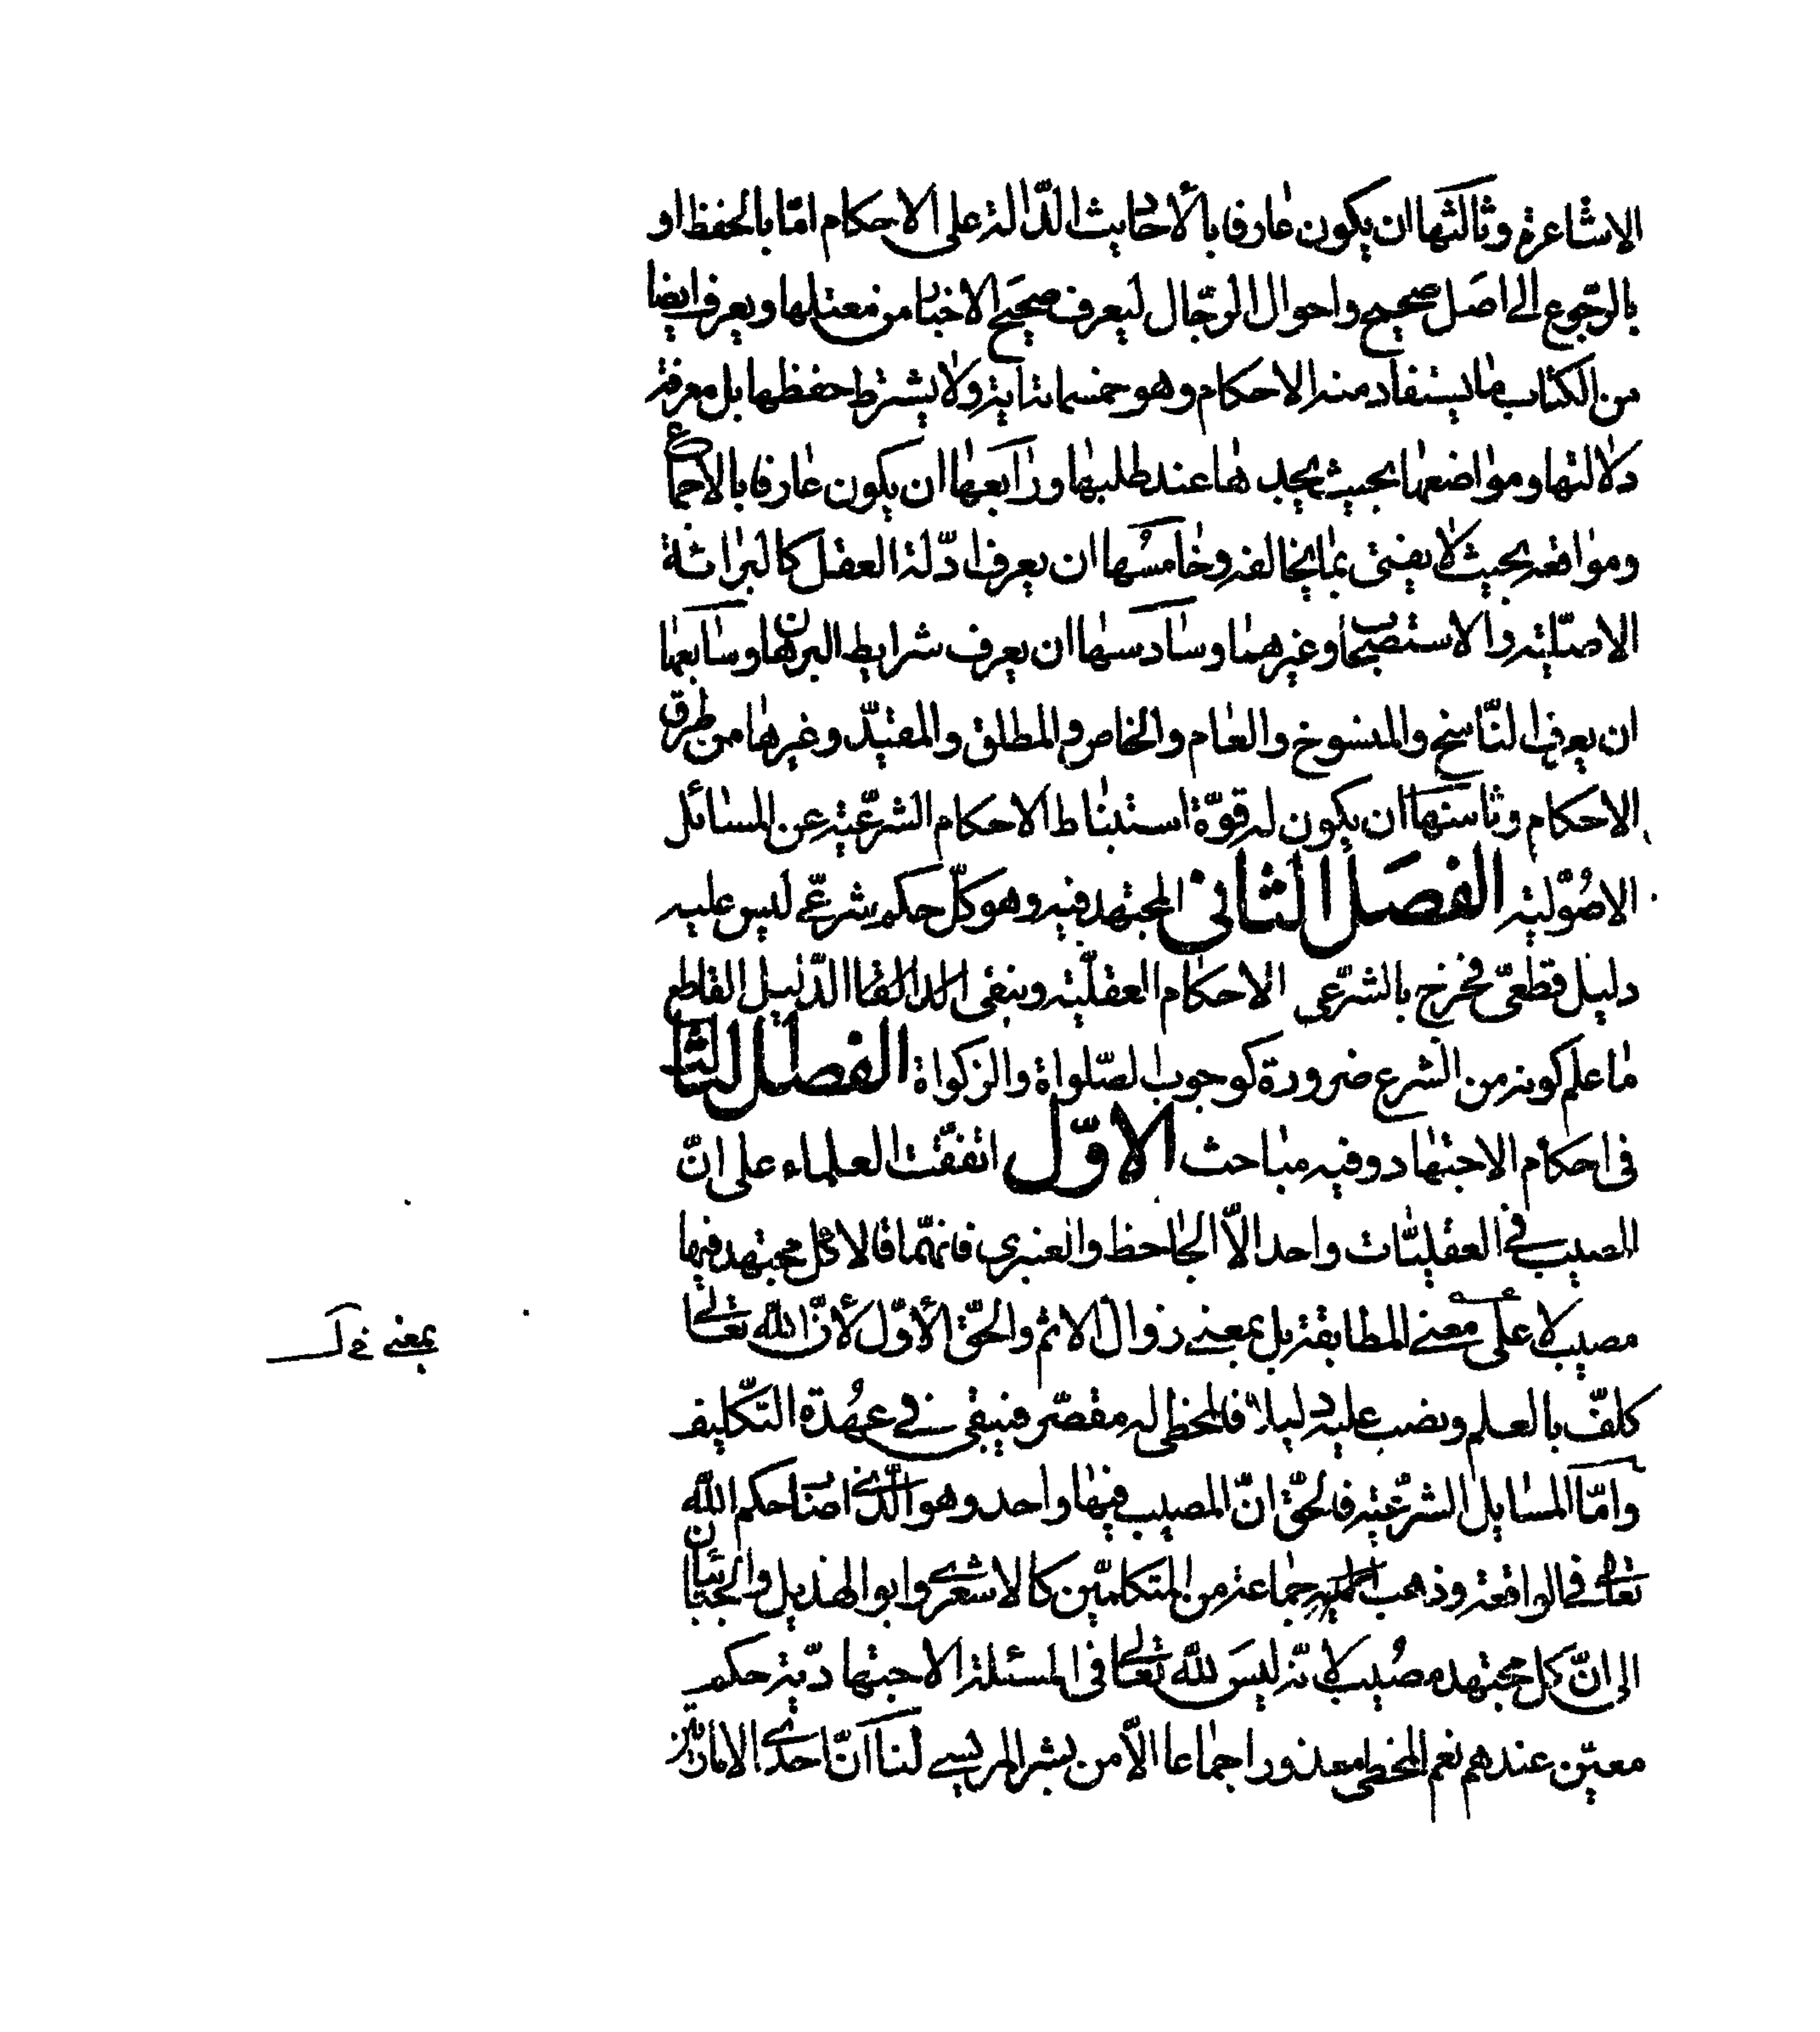 الاشاعرة وثالثها ان يكون عارفا بالأحاديث الدّالة على الاحكام امّا بالحفظ او
بالرّجوع الى اصل صحيح واحوال الرّجال ليعرف صحيح الاخبار من معتلها ويعرف ايضا
من الكتاب ما يستفاد منه الاحكام وهو خمسمائة اية ولا يشترط حفظها بل معرفة
دلالتها ومواضعها بحيث يجدها عند طلبها ورابعها ان يكون عارفا بالاجماع
ومواقعه بحيث لا يفتى بما يخالفه وخامسُها ان يعرف ادّلة العقل كالبرائة
الاصليّة والاستصحاب وغيرهما وسادسها ان يعرف شرايط البرهان وسابعها
ان يعرف النّاسخ والمنسوخ والعام والخاص والمطلق والمقيّد وغيرها من طرق
الاحكام وثامنها ان يكون له قوّة استنباط الاحكام الشرعيّة عن المسائل
الاصُوليّة الفصل الثانى المجتهد فيه وهو كلّ حكم شرعىّ ليس عليه
دليل قطعىّ فخرج بالشرّعى الاحكام العقليّة وبنفى الدّليل القاطع
ما علم كونه من الشرع ضرورة كوجوب الصّلواة والزكواة الفصل الثالث
فى احكام الاجتهاد وفيه مباحث الاوّل اتفقت العلماء على انّ
المصيب فى العقليّات واحد الاّ الجاحظ والعنبرى فانهّما قالا كل مجتهد فيها
مصيب لا على معنى المطابقة بل بمعنى زوال الاثم والحقّ الأوّل لأنّ اللّه تعالى
بمعنى خ ل
كلفّ بالعلم ونصب عليه دليلا فالمخطى له مقصّر فيبقى فى عهُدة التكّليف
وامّا المسايل الشرعيّة فالحقّ انّ المصيب فيها واحد وهو الّذى اصاب حكم اللّه
تعالى فى الواقعة وذهب جماعة من المتكلميّن كالاشعرى وابو الهذيل والجبّائيان
الى انّ كل مجتهد مصُيب لانّه ليس للّه تعالى فى المسئلة الاجتهاديّة حكم
معيّن عندهم نعم المخطى معذور اجماعا الاّ من بشر المريسى لنا انّ احدى الامارتين